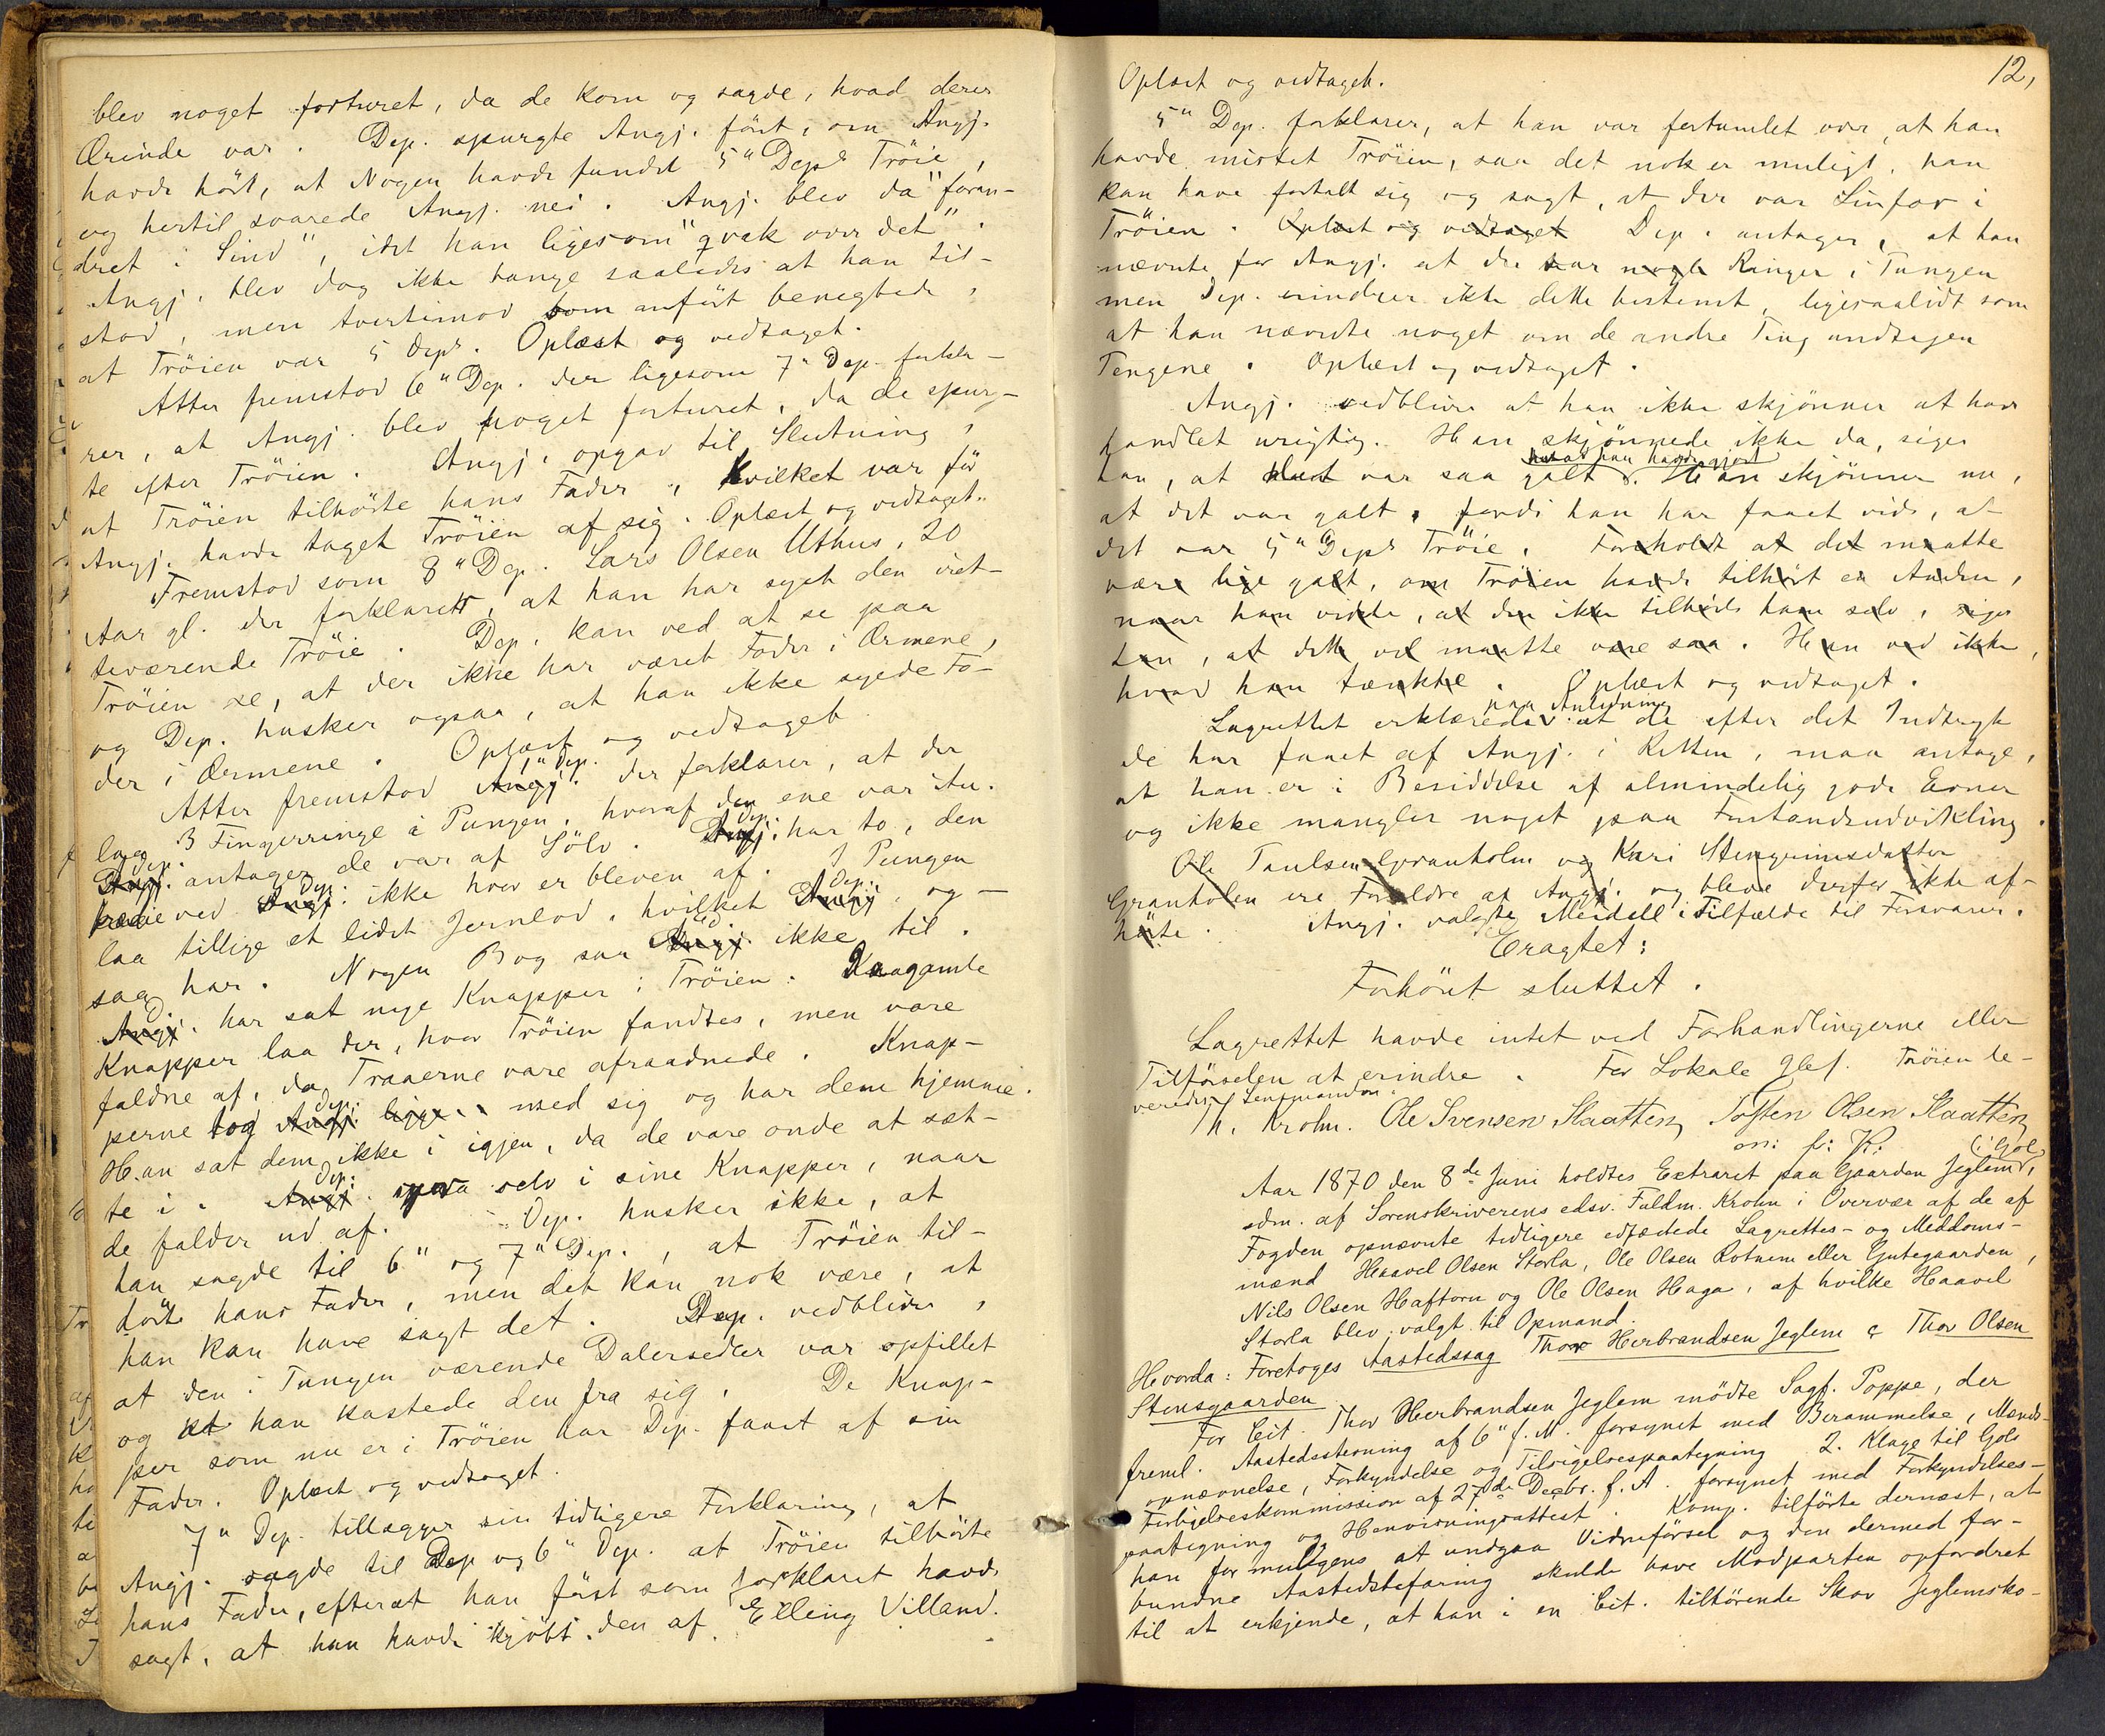 blev noget forturet, da de kom og sagde, hvad deres
Ærinde var. Dep. spurgte Angj. först, om Angj.
havde hört, at Nogen havde fundet 5" Deps Tröie,
og hertil svarede Angj. nei. Angj. blev da "foran-
dret i Sind", idet han ligesom "qvak over det".
Angj. blev dog ikke bange saaledes at han til-
stod, men tvertimod som anfört benegtede,
at Tröien var 5 Deps. Oplæst og vedtaget.
Atter fremstod 6" Dep. der ligesom 7" Dep. forkla-
rer, at Angj. blev noget forturet, da de spurg-
te efter Tröien. Angj. opgav til Slutning,
at Tröien tilhörte hans Fader, hvilket var för
Angj. havde taget Tröien af sig. Oplæst og vedtaget.
Fremstod som 8" Dep. Lars Olsen Uthus, 20
Aar gl. der forklarer, at han har syet den iret-
teværende Tröie. Dep. kan ved at se paa
Tröien se, at der ikke har været Foder i Ærmene,
og Dep. husker ogsaa, at han ikke syede Fo-
der i Ærmene. Oplæst og vedtaget
Atter fremstod Angj. 1" Dep. der forklarer, at der
laa 3 Fingerringe i Pungen, hvoraf den ene var itu.
Angj. Dep. antager de var af Sölv. Angj. Dep. har to, den
tredie ved Angj. Dep. ikke hvor er bleven af. I Pungen
laa tillige et lidet Jernlod, hvilket Angj. Dep. og-
saa har. Nogen Bog saa Angj. D. ikke til.
Angj. D. har sat nye Knapper i Tröien. De gamle
Knapper laa der, hvor Tröien fandtes, men vare
faldne af, da Traaerne vare afraadnede. Knap-
perne tog Angj. Dep. ligge med sig og har dem hjemme.
Han sat dem ikke i igjen, da de vare onde at sæt-
te i. Angj. Dep. selv i sine Knapper, naar
de falder ud af. Dep. husker ikke, at
han sagde til 6" og 7" Dep., at Tröien til-
hörte hans Fader, men det kan nok være, at
han kan have sagt det. Dep. vedbliver,
at den i Pungen værende Dalerseddel var opfillet
og at han kastede den fra sig. De Knap-
per som nu er i Tröien har Dep. faaet af sin
Fader. Oplæst og vedtaget.
7" Dep. tillægger sin tidligere Forklaring, at
Angj. sagde til Dep og 6" Dep. at Tröien tilhörte
hans Fader, efterat han först som forklaret havde
sagt, at han havde kjöbt den af Elling Villand.
12,
Oplæst og vedtaget.
5" Dep. forklarer, at han var fortumlet over, at han
havde mistet Tröien, saa det nok er muligt, han
kan have fortalt sig og sagt, at der var Linfor i
Tröien. Oplæst og vedtaget Dep. antager, at han
nævnte for Angj. at der var nogle Ringer i Pungen
men Dep. erindrer ikke dette bestemt, ligesaalidt som
at han nævnte noget om de andre Ting undtagen
Pengene. Oplæst og vedtaget.
Angj. vedbliver at han ikke skjönner at have
handlet urigtig. Han skjönnede ikke da, siger
hvad han havde gjort
han, at det var saa galt. Han skjönner nu,
at det var galt, fordi han har faaet vide, at
det var 5" Deps Tröie. Foreholdt at det maatte
være lige galt, om Tröien havde tilhört en Anden,
naar han vidste, at den ikke tilhörte ham selv, siger
han, at dette vel maatte være saa. Han ved ikke,
hvad han tænkte. Oplæst og vedtaget.
paa Anledning
Lagrettet erklærede at de efter det Indtryk
de har faaet af Angj. i Retten, maa antage,
at han er i Besiddelse af almindelig gode Evner
og ikke mangler noget paa Forstandsudvikling.
Ole Paulsen Granholm og Kari Stengrimsdatter
Granholen ere Forældre af Angj. og bleve derfor ikke af-
hörte. Angj. valgte Meidell i Tilfælde til Forsvarer.
Eragtet:
Forhöret sluttet.
Lagrettet havde intet ved Forhandlingerne eller
Tilförselen at erindre. For Lokale Glef. Tröien le-
veredes Lensmanden.
Th. Krohn. Ole Svensen Slaatten Tosten Olsen Slaatten
m: f: P:
Aar 1870 den 8de Juni holdtes Extraret paa Gaarden Jeglem i Gol,
adm. af Sorenskriverens edsv. Fuldm. Krohn i Overvær af de af
Fogden opnævnte tidligere edfæstede Lagrettes- og Meddoms-
mænd Haavel Olsen Storla, Ole Olsen Rotnem eller Gutegaarden,
Nils Olsen Haftorn og Ole Olsen Haga, af hvilke Haavel
Storla blev valgt til Opmand.
Hvorda: Foretoges Aastedssag Thor Herbrandsen Jeglem c Thor Olsen
Stensgaarden
For Cit. Thor Herbrandsen Jeglem mödte Sagf. Poppe, der
freml. Aastedsstevning af 6" f. M. forsynet med Berammelse, Mænds-
opnævnelse, Forkyndelse og Tilsigelsespaategning 2. Klage til Gols
Forligelseskommission af 27de Decbr. f. A. forsynet med Forkyndelses-
paategning og Henvisningsattest. Komp. tilförte dernæst, at
han for muligens at undgaa Vidneförsel og den dermed for-
bundne Aastedsbefaring skulde have Modparten opfordret
til at erkjende, at han i en Cit. tilhörende Skov Jeglemsko-